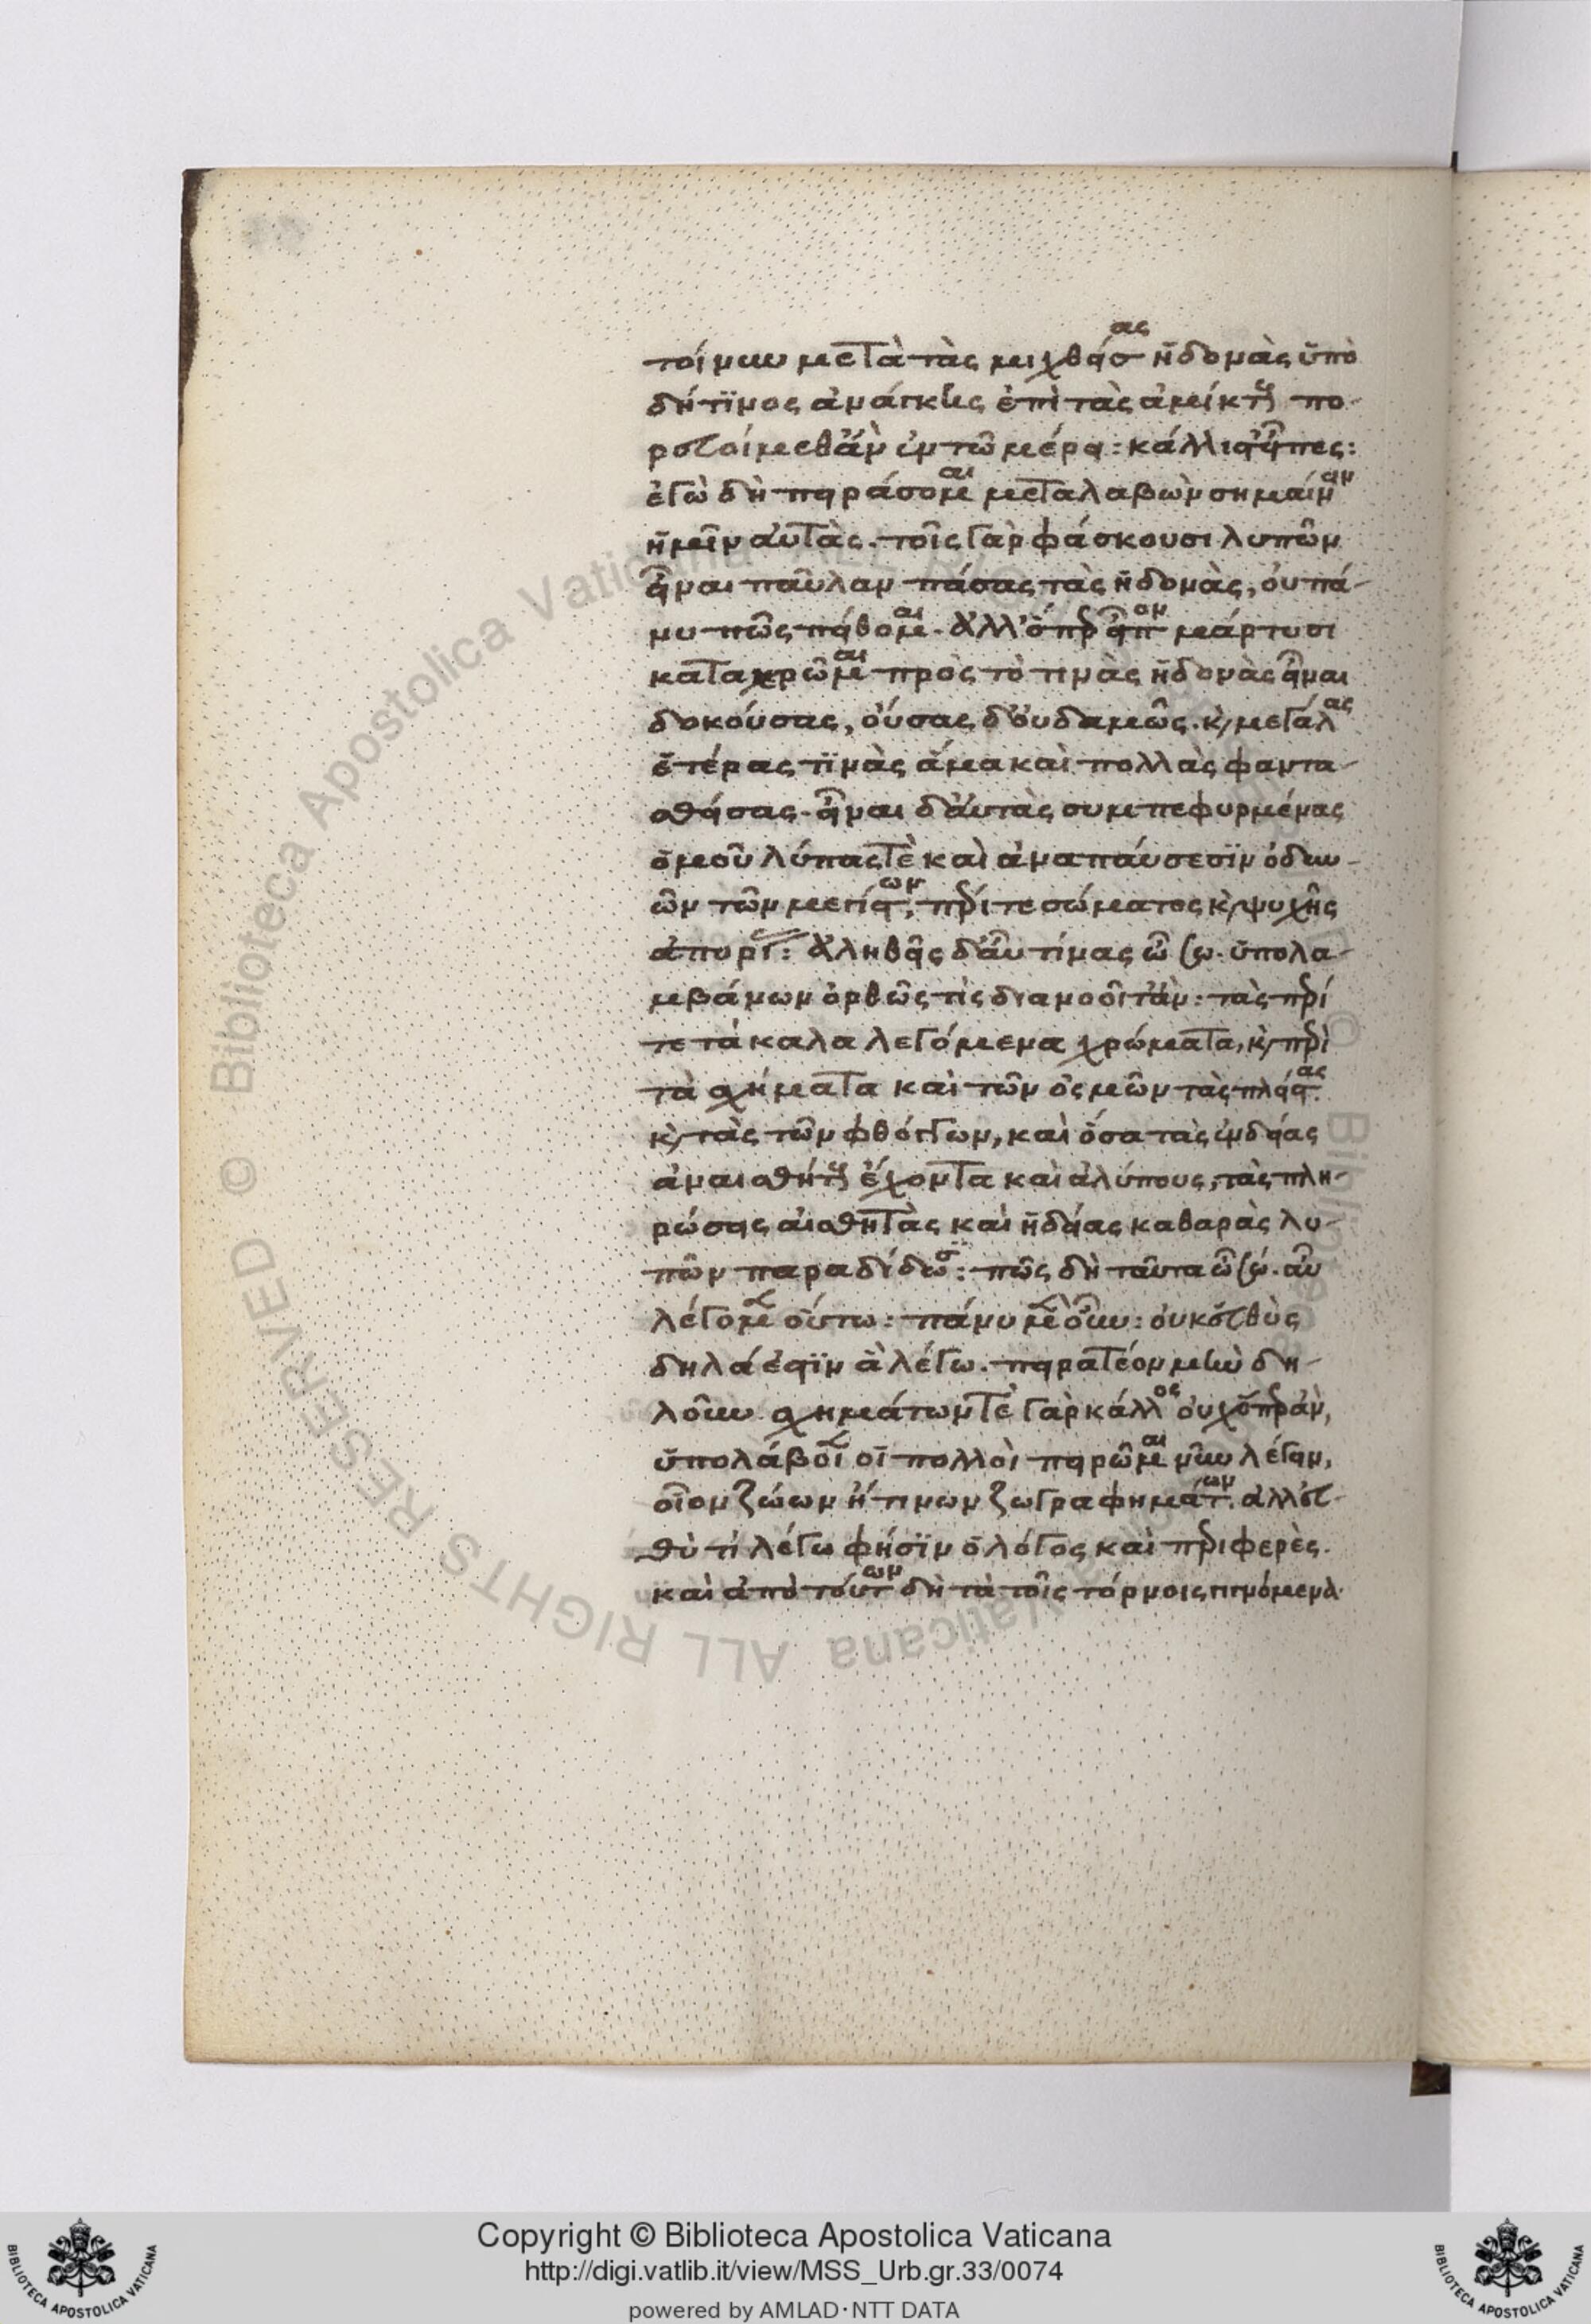 τοίνυν μετὰ τὰς μειχθείσας ἡδονὰς ὑπὸ
δή τινος ἀνάγκης ἐπὶ τὰς ἀμείκτους πο-
ρευοίμεθ' ἂν ἐν τῷ μέρει: κάλλιστ' εἶπες:
ἐγὼ δὴ πειράσομαι μεταλαβὼν σημαίνειν
ἡμεῖν αὐτὰς. τοῖς γὰρ φάσκουσι λυπῶν
εἶναι παῦλαν πάσας τὰς ἡδονὰς, οὐ πά-
νυ πῶς πείθομαι. ἀλλ' ὅπερ εἶπον μάρτυσι
καταχρῶμαι πρὸς τὸ τινὰς ἡδονὰς εἶναι
δοκούσας, οὔσας δ' οὐδαμῶς. κ, μεγάλας
ἑτέρας τϊνὰς ἅμα καὶ πολλὰς φαντα-
σθείσας. εἶναι δ' αὐτὰς συμπεφυρμένας
ὁμοῦ λύπαις τὲ καὶ ἀναπαύσεσϊν ὀδυν-
ῶν τῶν μεγίστων, περί τε σώματος κ, ψυχῆς
ἀπορίας: ἀληθεῖς δ' αὖ τίνας ὦ σώ. ὑπολα-
μβάνων ὀρθῶς τὶς διανοοῖτ' ἄν: τὰς περί
τε τὰ καλα λεγόμενα χρώματα, κ, περὶ
τὰ σχήματα καὶ τῶν ὀσμῶν τὰς πλείστας.
κ, τὰς τῶν φθόγγων, καὶ ὅσα τὰς ἐνδείας
ἀναισθήτους ἔχοντα καὶ ἀλύπους, τὰς πλη-
ρώσεις αἰσθητὰς καὶ ἡδείας καθαρὰς λυ-
πῶν παραδίδωσϊν: πῶς δὴ ταῦτα ὦ σώ. αὖ
λέγομεν οὕτω: πάνυ μὲν οὖν: οὐκ εὐθὺς
δηλά ἐστϊν ἃ λέγω. πειρατέον μὴν δη-
λοῦν. σχημάτων τὲ γὰρ κάλλος οὐχ ὅπερ ἂν,
ὑπολάβοιεν οἱ πολλοὶ πειρῶμαι νῦν λέγειν,
οἷον ζώων ἤ τινων ζωγραφημάτων. ἀλλ' εὐ-
θύ τι λέγω φήσϊν ὁ λόγος καὶ περιφερὲς.
καὶ ἀπὸ τούτων δὴ τὰ τοῖς τόρνοις γιγνόμενα.
Copyright © Biblioteca Apostolica Vaticana
http://digi.vatlib.it/view/MSS_Urb.gr.33/0074
powered by AMLAD·NTT DATA
BIBLIOTECA APOSTOLICA VATICANA
BIBLIOTECA APOSTOLICA VATICANA